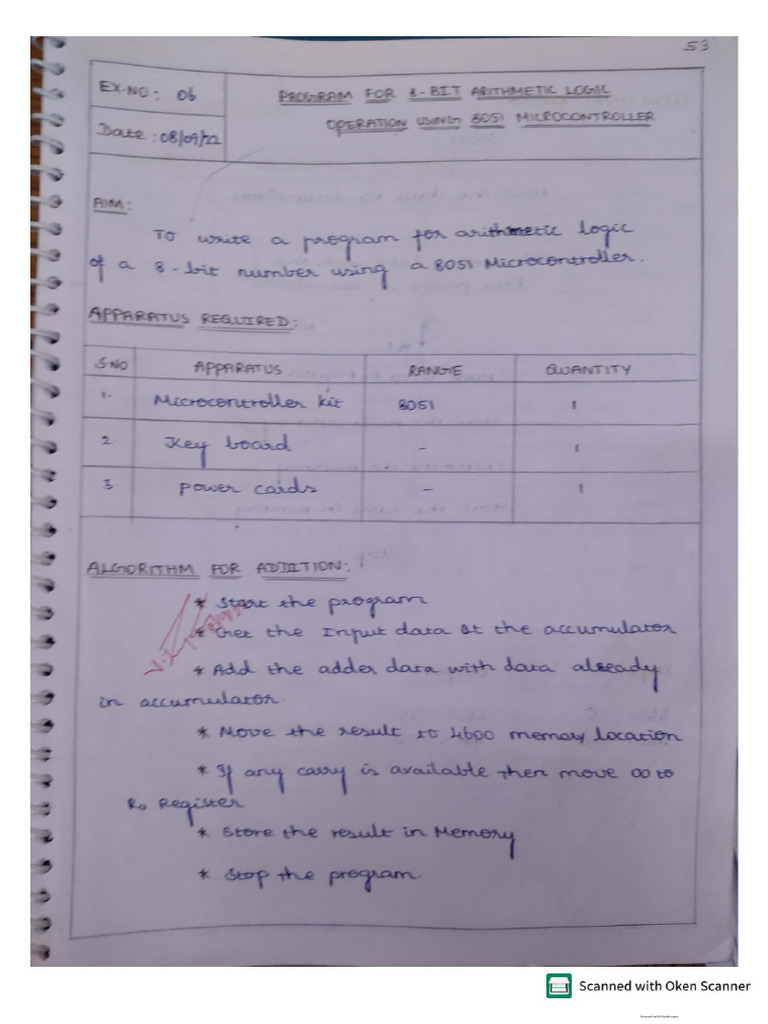 53
EX.NO: 06
PROGRAM FOR 8-BIT ARITHMETIC LOGIC
OPERATION USING 8051 MICROCONTROLLER
Date: 08/09/22
AIM:
To write a program for arithmetic logic
of a 8-bit number using a 8051 Microcontroller.
APPARATUS REQUIRED:
S.NO APPARATUS RANGE QUANTITY
1. Microcontroller kit 8051 1
2. Key board - 1
3. power cards - 1
ALGORITHM FOR ADDITION:
* Start the program
* Get the Input data at the accumulator
* Add the adder data with data already
in accumulator.
* Move the result to 4600 memory location
* If any carry is available then move 00 to
R0 Register
* Store the result in Memory
* Stop the program.
Scanned with Oken Scanner